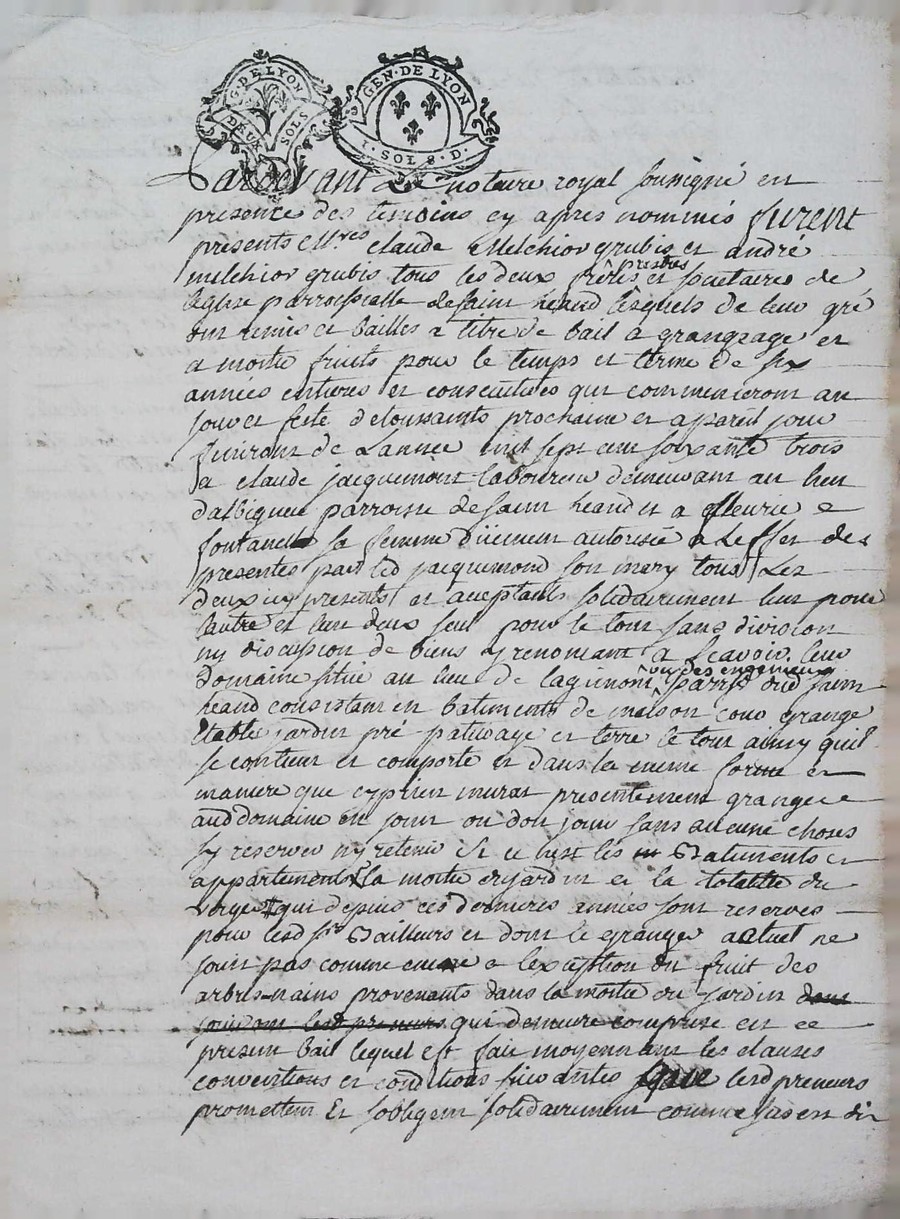 G. DE LYON
DEUX SOLS
GEN. DE LYON
1. SOL 8. D.
Pardevant Le notaire royal soussigné en
presence des temoins cy apres nommés furent
presents Mres claude Melchior grubis et andré
milchior grubis tous les deux prêtres et societaires de
leglise parroissialle de saint heand lesquels de leur gré
ont remis et bailles a titre de bail a grangeage et
a moitié fruits pour le temps et terme de six
années entieres et consecutives qui commenceront au
jour et feste de toussaints prochaine et apareil jour
finiront de Lannée mil sept cent soixante trois
a claude jacquemont laboureur demeurant au lieu
dalbigneu parroisse de saint heand et a fleurie
fontanel sa femme duement autorisée a Leffet des
presentes par led jacquemond son mary tous Les
deux icy presents et acceptants solidairement lun pour
lautre et lun deux seul pour le tout sans division
ny discussion de biens y renoncant a scavoir leur
Domaine situé au lieu de parrse dud saint
heand consistant en batiments de maison cour grange
Etable jardin pré paturage et terre le tout ainsy quil
se contient et comporte et dans la meme forme et
maniere que cyprien murat presentement granger
aud domaine en jouit ou doit jouir sans aucune choses
sy reserver ny retenir si ce nest les Batiments et
appartements la moitié du jardin et la totalité du
verger qui depuis ces dernieres années sont reserves
pour lesd srs Bailleurs et dont le granger actuel ne
jouit pas comme encore a lexception du fruit des
arbres nains provenants dans la moitié du jardin dont
jouiront lesd preneurs qui demeure comprise en ce
present bail lequel est fait moyennant les clauses
conventions et conditions suivantes que lesd preneurs
promettent Et sobligent solidairement comme sus est dit